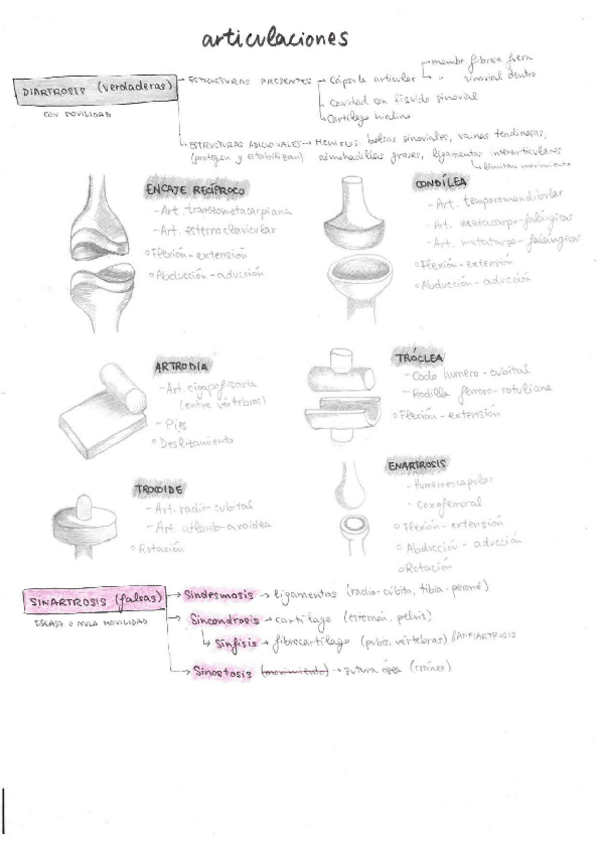 articulaciones
DIARTROSIS (verdaderas)
CON MOVILIDAD
ESTRUCTURAS PRESENTES → Cápsula articular → membr fibrosa fuera
→ " sinovial dentro
→ Cavidad con líquido sinovial
→ Cartílago hialino
ESTRUCTURAS ADICIONALES → Meniscus, bolsas sinoviales, vainas tendinosas,
(protegen y estabilizan) almohadillas grasas, ligamentos interarticulares
→ limitan movimiento
ENCAJE RECÍPROCO
- Art. transtometacarpiana
- Art. esternoclavicular
○ Flexión - extensión
○ Abducción - aducción
CONDÍLEA
- Art. temporomandibular
- Art. metacarpo-falángicas
- Art. metatarso-falángicas
○ Flexión - extensión
○ Abducción - aducción
ARTRODIA
- Art. cigapofisaria
(entre vértebras)
- Pies
○ Deslizamiento
TRÓCLEA
- Codo humero-cubital
- Rodilla femoro-rotuliana
○ Flexión - extensión
TROCOIDE
- Art. radio-cubital
- Art. atlanto-axoidea
○ Rotación
ENARTROSIS
- Humeroescapular
- Coxofemoral
○ Flexión - extensión
○ Abducción - aducción
○ Rotación
SINARTROSIS (falsas)
ESCASA O NULA MOVILIDAD
→ Sindesmosis → ligamentos (radio-cúbito, tibia-peroné)
→ Sincondrosis → cartílago (esternón, pelvis)
↳ Sínfisis → fibrocartílago (pubis, vértebras) //ANFIARTROSIS
→ Sinostosis (movimiento) → sutura ósea (cráneo)